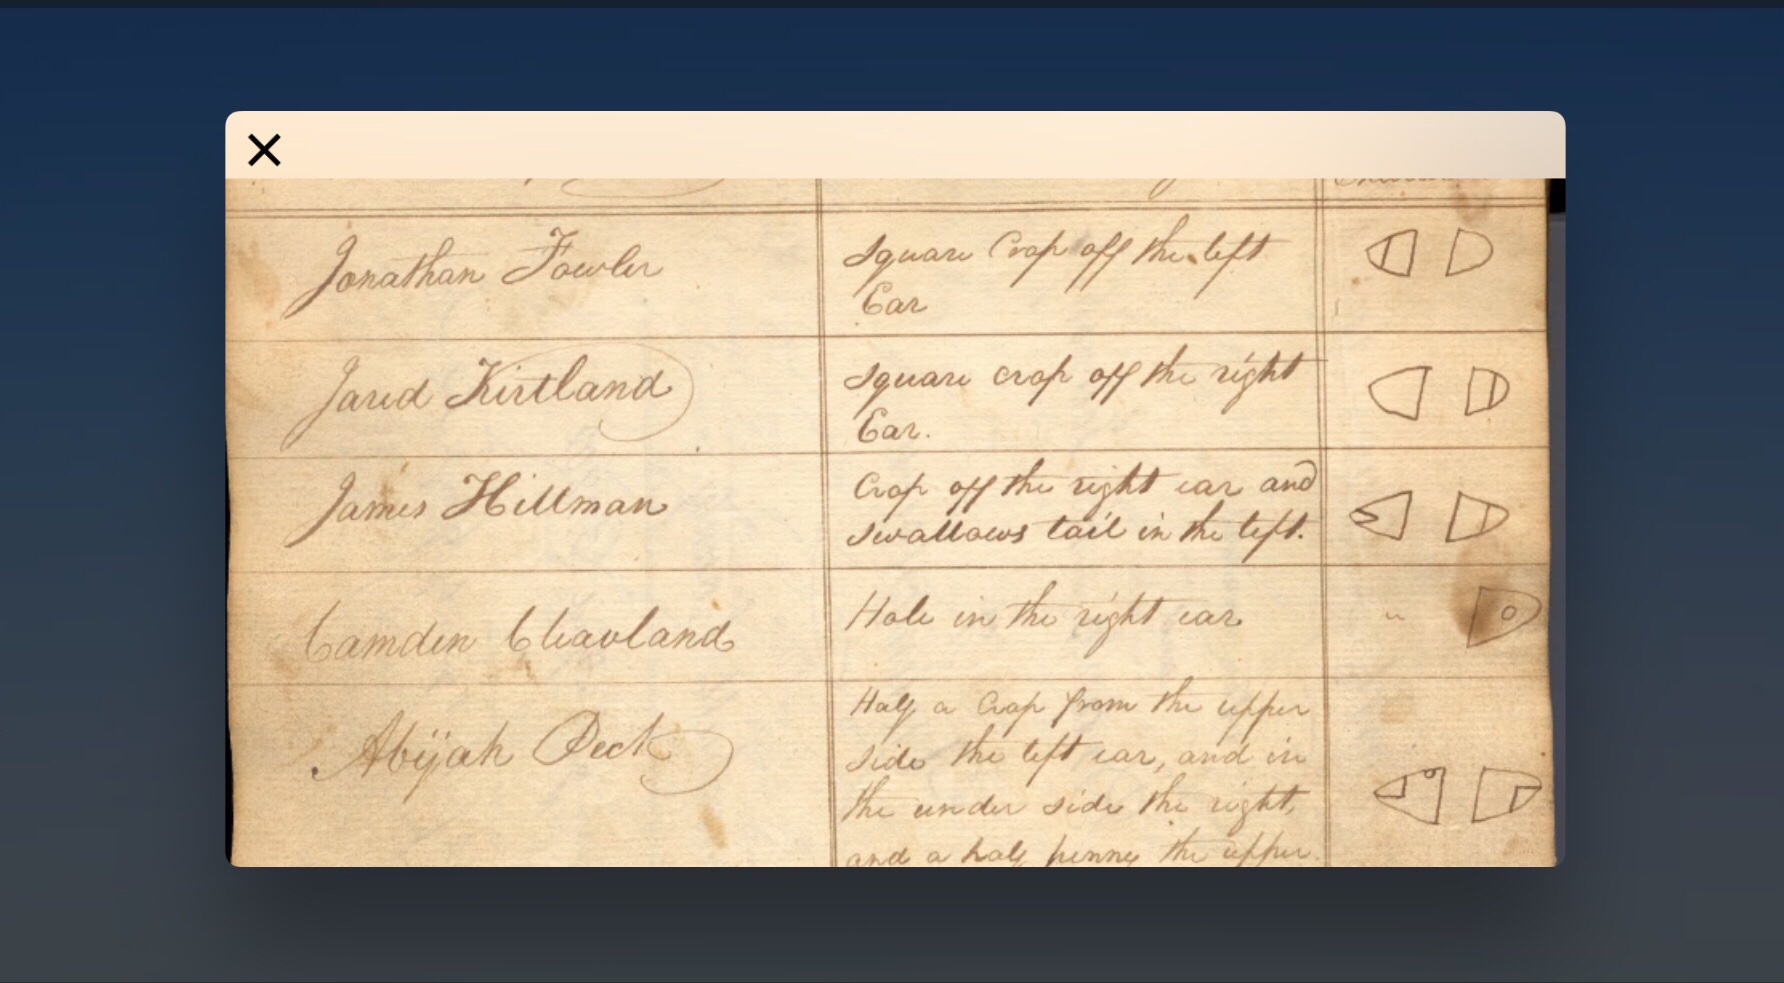 Jonathan Fowler
Square Crop off the left
Ear
Jared Kirtland
Square crop off the right
Ear.
James Hillman
Crop off the right ear and
swallows tail in the left.
Camden Cleavland
Hole in the right ear
Abijah Peck
Half a Crop from the upper
side the left ear, and in
the under side the right,
and a half penny the upper